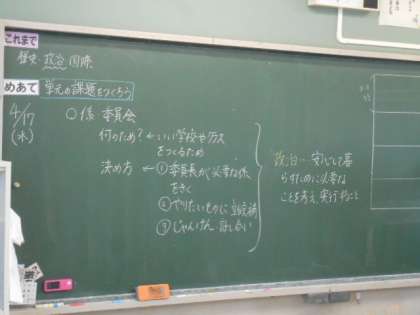 これまで
歴史 政治 国際
めあて 単元の課題をつくろう
4/17
(木)
○係 委員会
何のため?←いい学校やクラス
をつくるため
決め方 ←①委員長が必要な係
をきく
②やりたいものに立候補
③じゃんけん 話し合い
政治…安心して暮
らすために必要な
ことを考え、実行すること